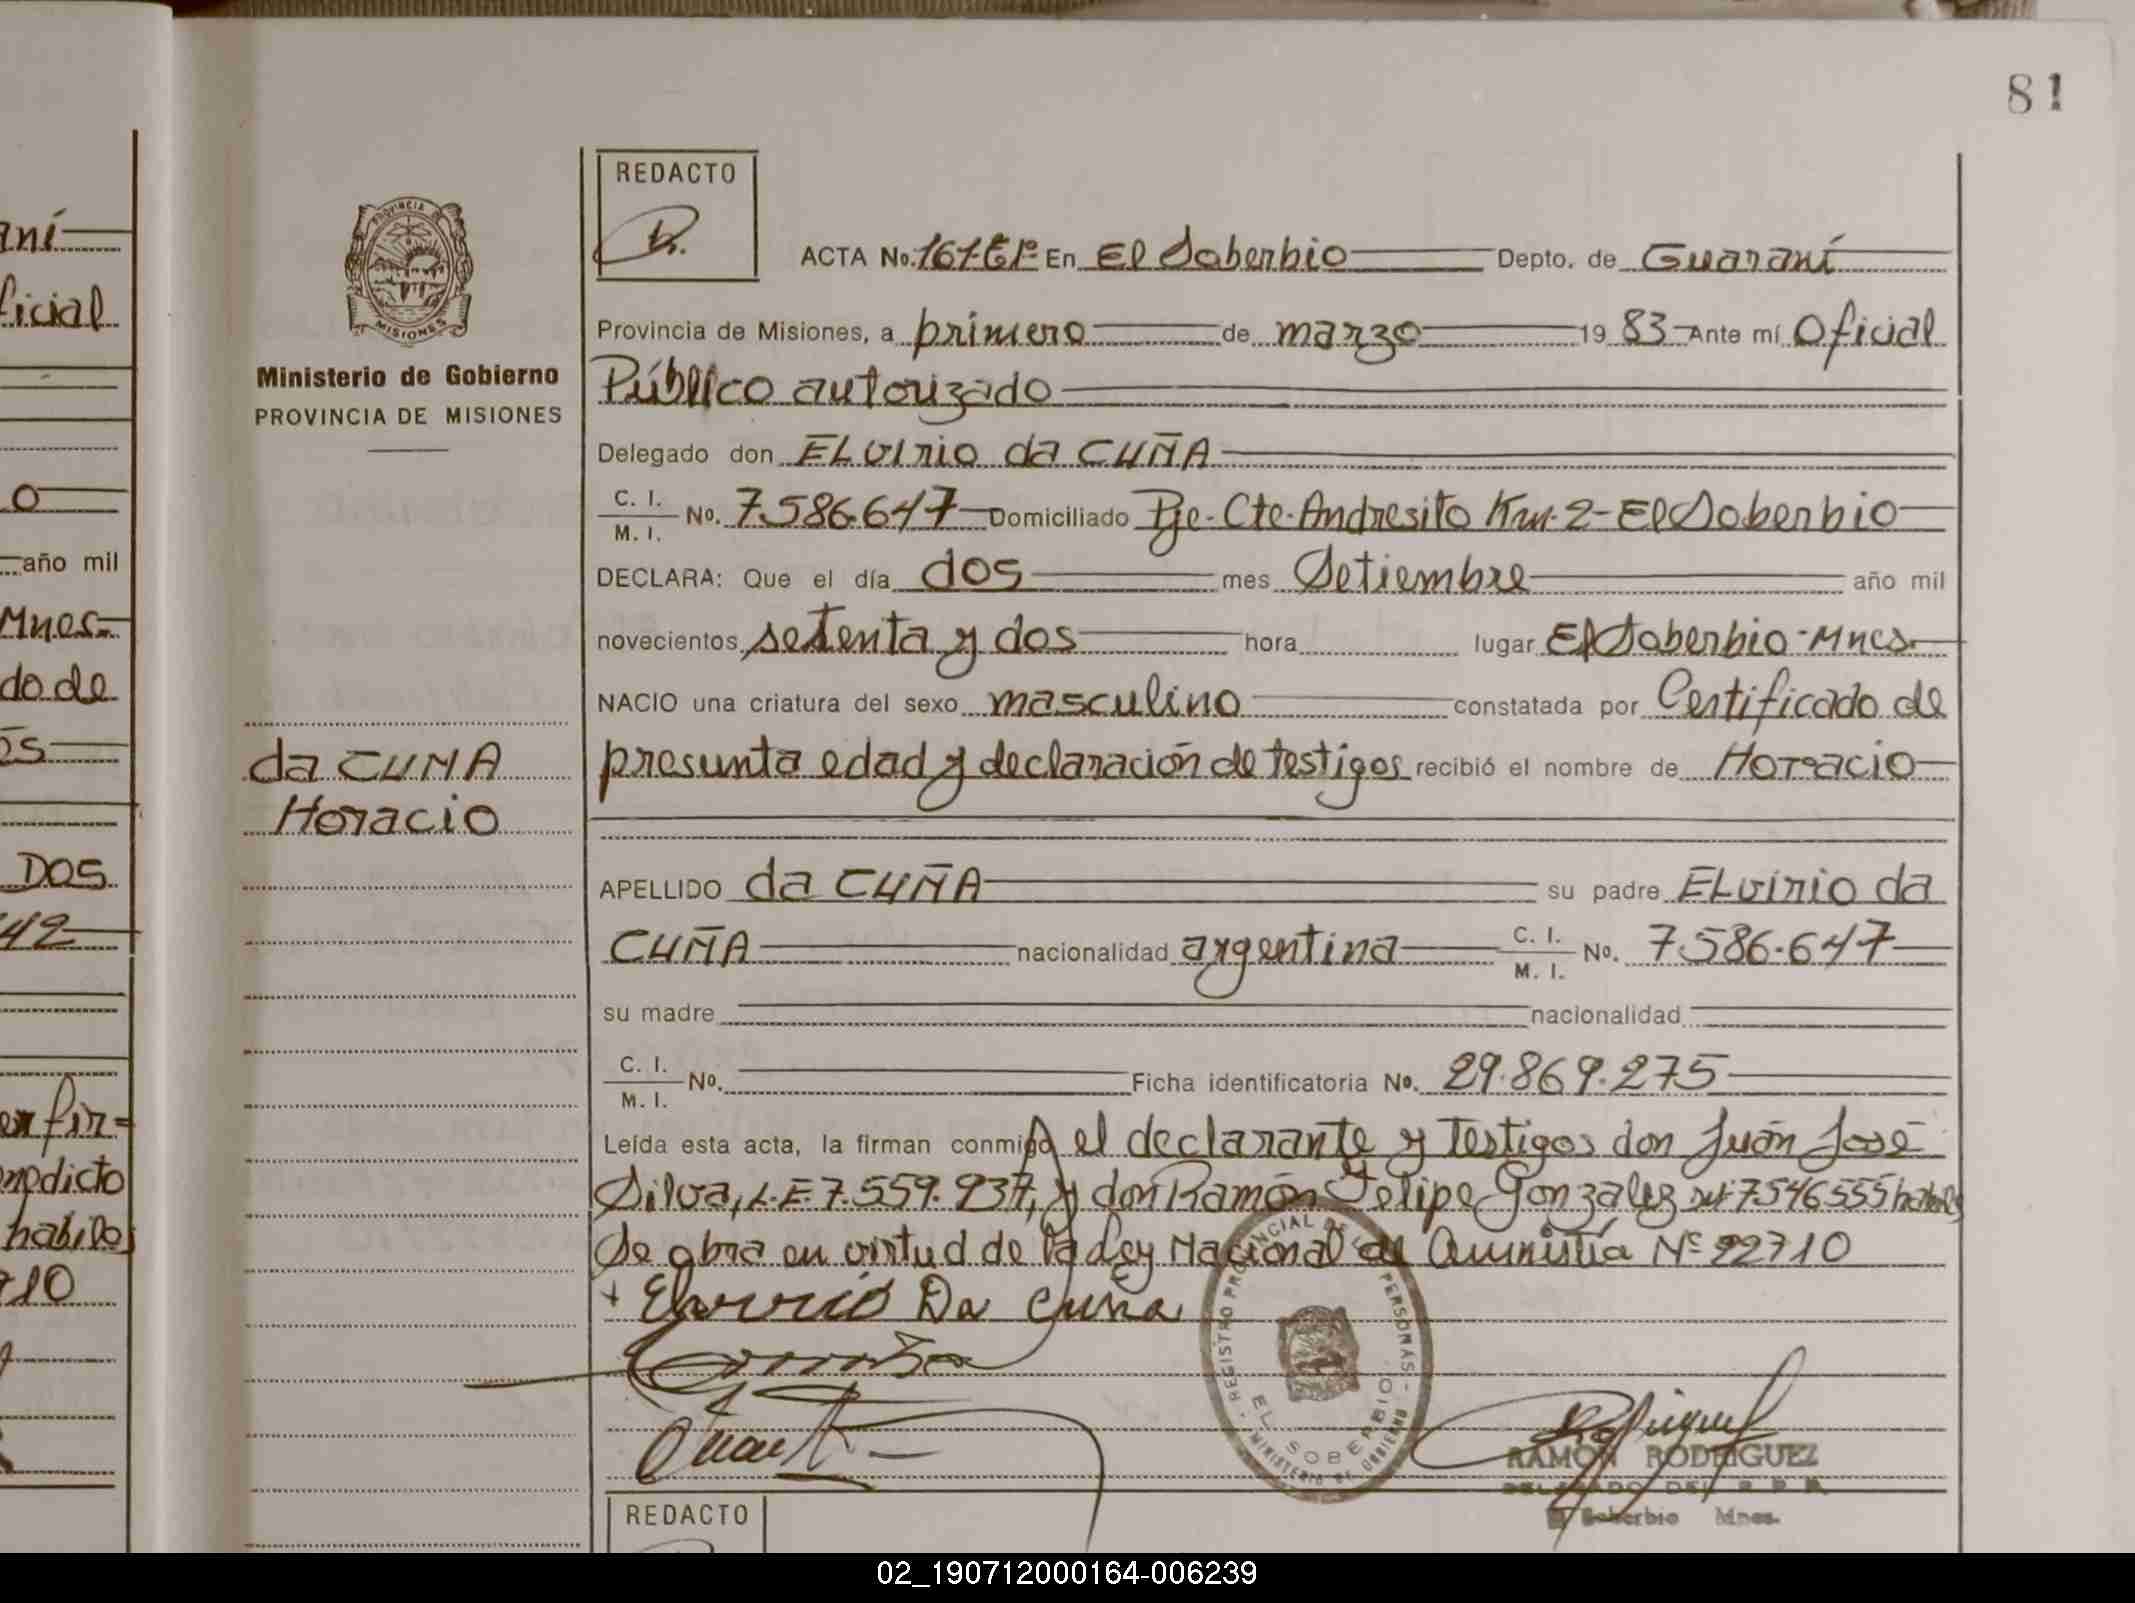 81
REDACTO
ACTA No. 161-Eº En El Soberbio Depto. de Guaraní
Provincia de Misiones, a primero de marzo 19 83 Ante mí Oficial
Público autorizado
Delegado don ELVIRIO da CUÑA
C. I.
M. I. No. 7.586.647 Domiciliado Pje. Cte. Andresito Km. 2 - El Soberbio
DECLARA: Que el día dos mes Setiembre año mil
novecientos setenta y dos hora lugar El Soberbio - Mnes.
NACIO una criatura del sexo masculino constatada por Certificado de
presunta edad y declaración de testigos recibió el nombre de HORacio
APELLIDO da CUÑA su padre ELvirio da
CUÑA nacionalidad argentina C. I.
M. I. No. 7.586.647
su madre nacionalidad
C. I.
M. I. No. Ficha identificatoria No. 29.869.275
Leída esta acta, la firman conmigo el declarante y testigos don Juán José
Silva, L.E. 7.559.937, y don Ramón Felipe Gonzalez 7546555 habiles
Se obra en virtud de la Ley Nacional de Amnistía Nº 22710
+ Elvirio Da Cuña
REGISTRO PROVINCIAL DE PERSONAS
EL SOBERBIO
MINISTERIO DE GOBIERNO
RAMON RODRIGUEZ
DELEGADO DEL R. P. P.
El Soberbio Mnes.
REDACTO
PROVINCIA
MISIONES
Ministerio de Gobierno
PROVINCIA DE MISIONES
da CUÑA
Horacio
aní
ficial
o
año mil
Mnes.
do de
DOS
42
en fir-
enedicto
habiles
710
02_190712000164-006239